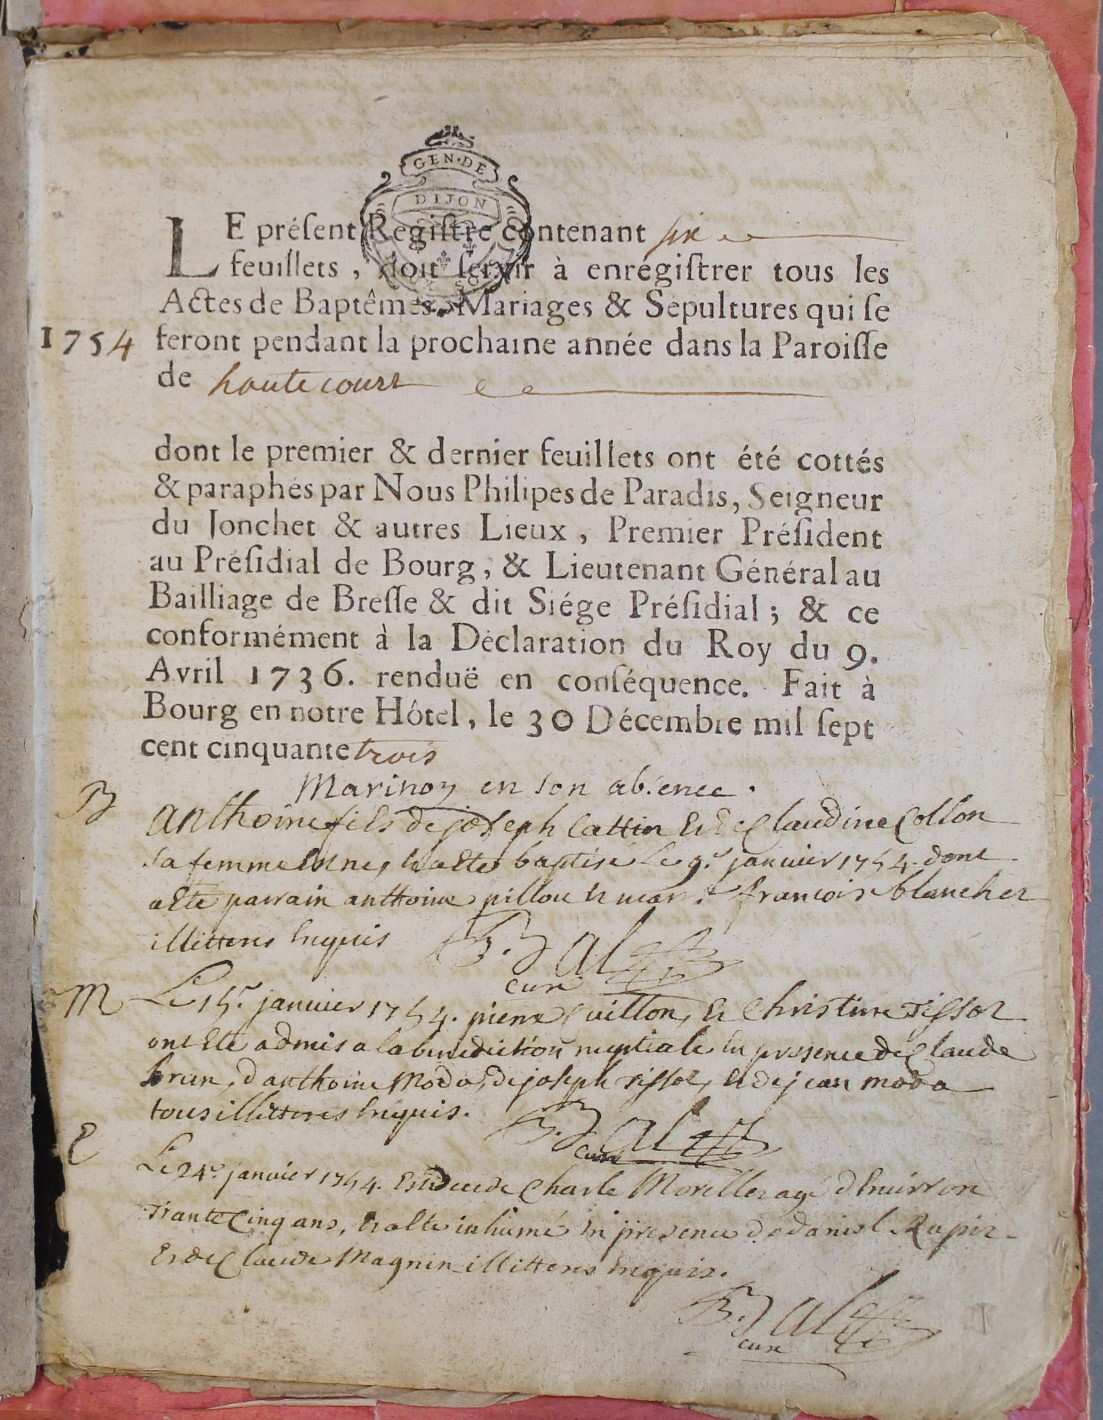 GEN·DE
DIJON
LE préſent Regiſtre contenant six
feuillets, doit ſervir à enregiſtrer tous les
Actes de Baptêmes, Mariages & Sépultures qui ſe
1754 feront pendant la prochaine année dans la Paroiſſe
de hautecourt
dont le premier & dernier feuillets ont été cottés
& paraphés par Nous Philipes de Paradis, Seigneur
du Jonchet & autres Lieux, Premier Préſident
au Préſidial de Bourg, & Lieutenant Général au
Bailliage de Breſſe & dit Siége Préſidial; & ce
conformément à la Déclaration du Roy du 9.
Avril 1736. renduë en conſéquence. Fait à
Bourg en notre Hôtel, le 30 Décembre mil ſept
cent cinquante trois
Marinon en son absence.
B anthoine fils de joseph Cattin Et de Claudine Collon
sa femme Est né, Et a Eté baptisé Le 9e. janvier 1754. dont
a Eté parrain anthoine pillou Et mar. françoise blancher
illitterés Enquis
B. Jal
curé
M Le 15e. janvier 1754. pierre Guillon, Et Christine Tissot
ont Eté admis a la benediction nuptiale En presence de Claude
brun, d'anthoine Moda, de joseph Tissot, Et de jean moda
tous illitterés Enquis.
B. Jal
curé
E Le 24e. janvier 1754. Est decedé Charle Morellet agé d'Environ
Trante Cinq ans, Et a Eté inhumé En presence de daniel Rupir
Et de Claude Magnin illitterés Enquis.
B. Jal
curé